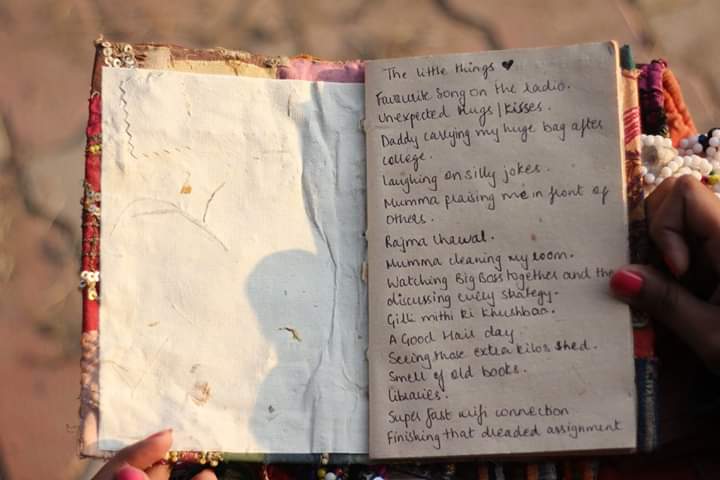 The little things ♥
Favourite song on the radio.
Unexpected hugs/kisses.
Daddy carrying my huge bag after
college.
Laughing on silly jokes.
Mumma praising me in front of
others.
Rajma Chawal.
Mumma cleaning my room.
Watching Big Boss together and the
discussing every strategy.
Gili mithi ki khushboo.
A Good Hair day
Seeing those extra kilos shed.
Smell of old books.
Libraries.
Super fast wifi connection
Finishing that dreaded assignment